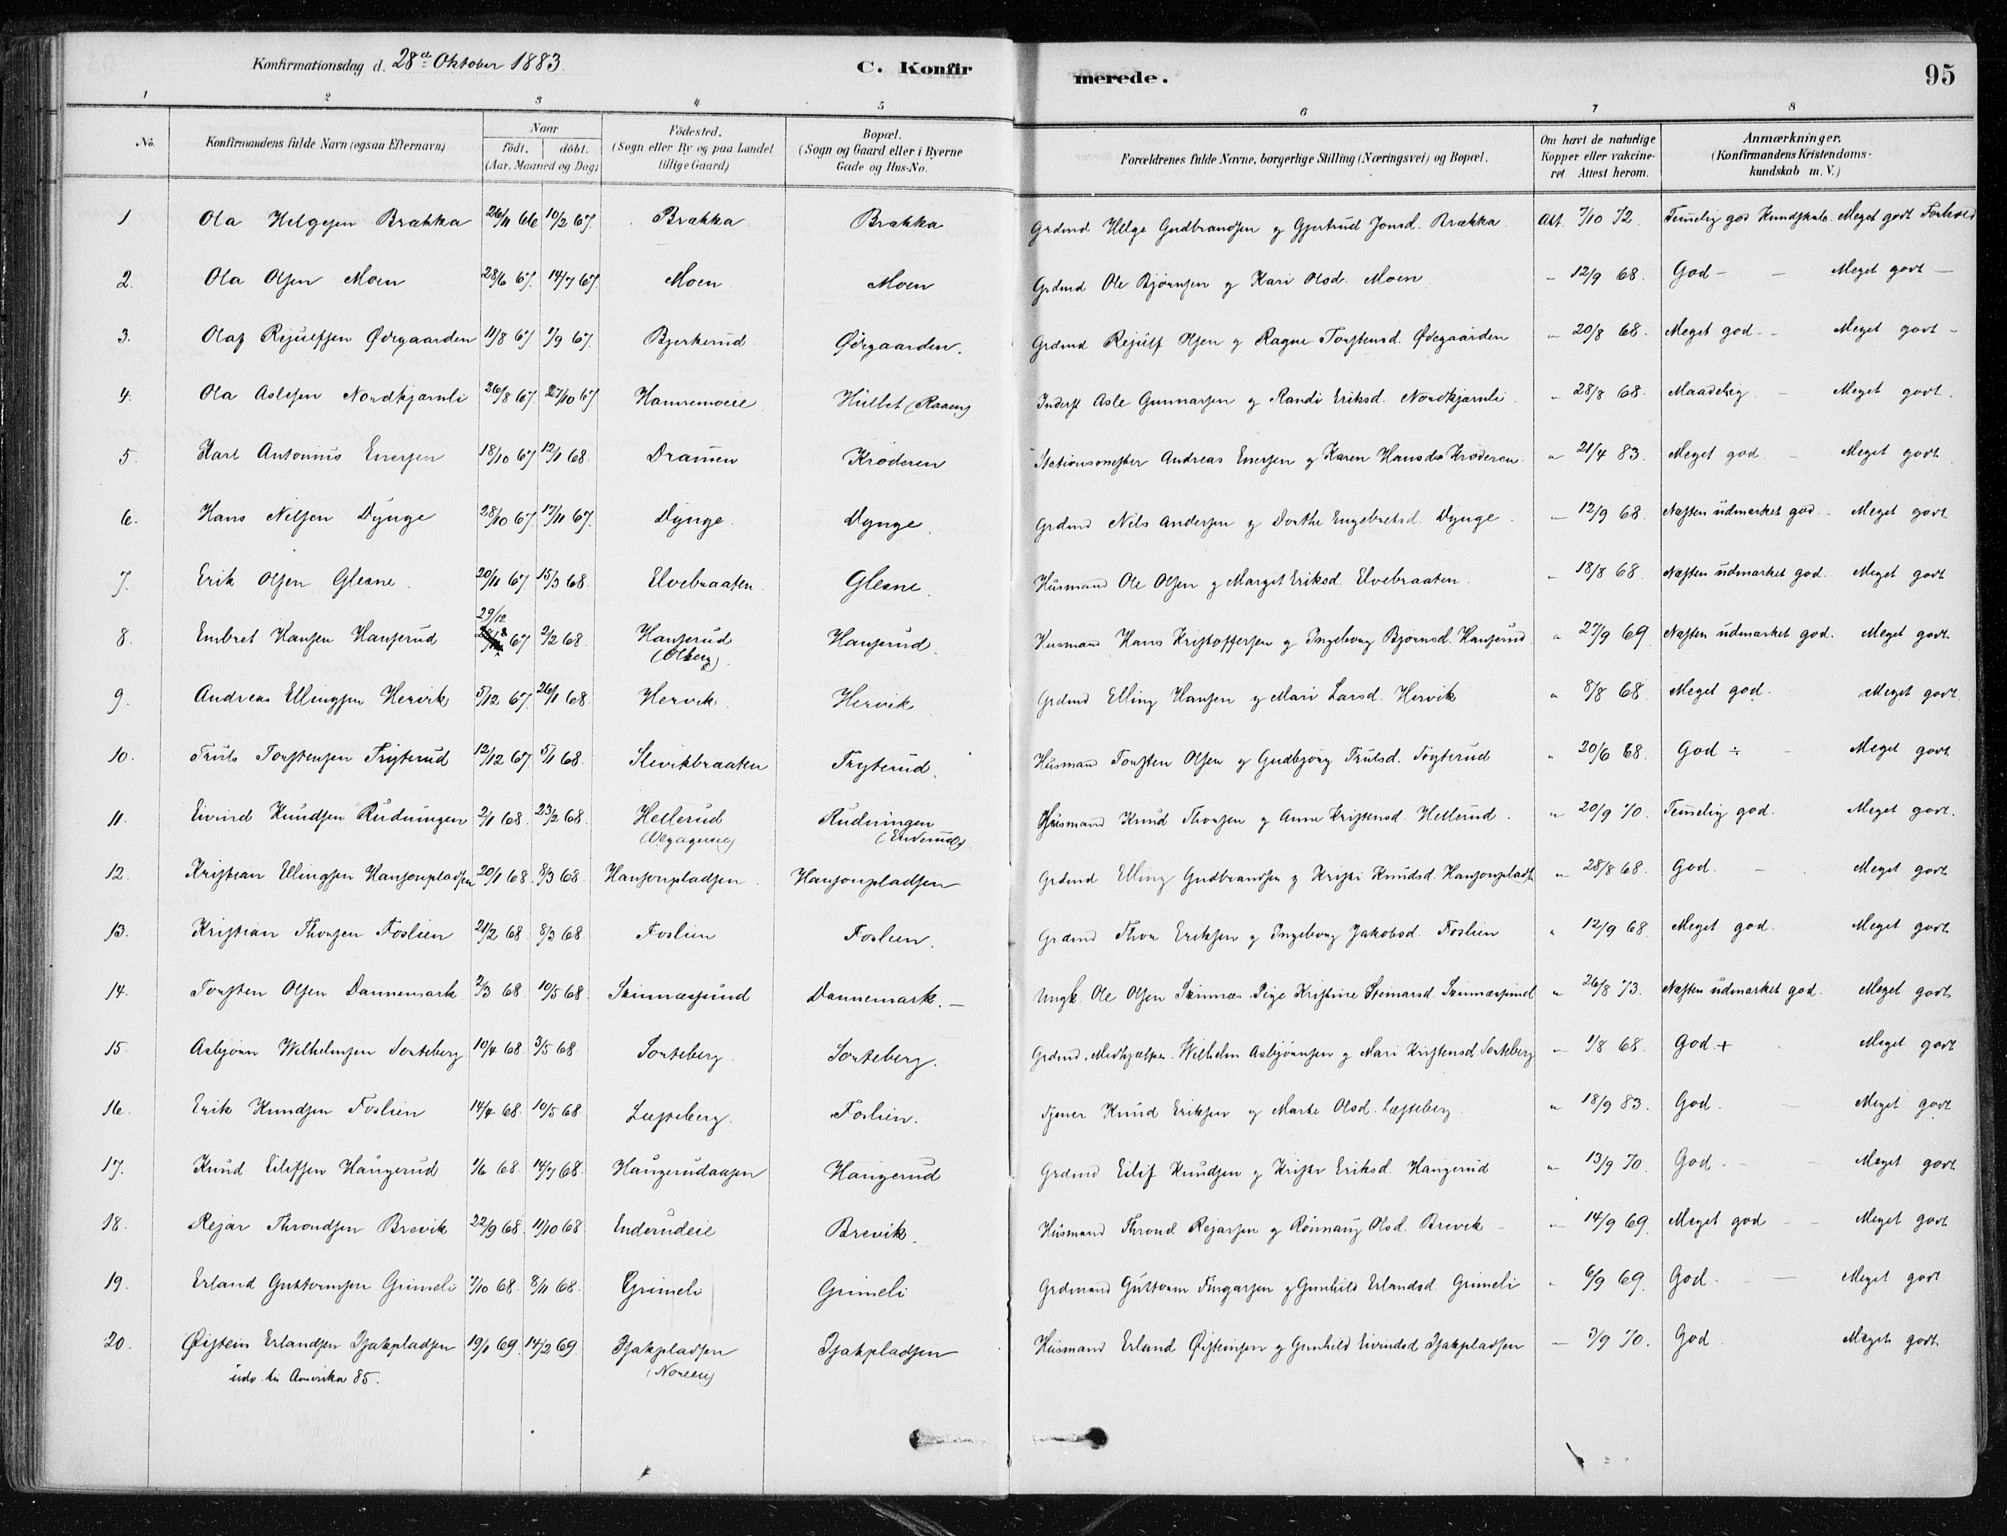 Konfirmationsdag d. 28de Oktober 1883.
C. Konfir merede. 95
1 2 3 4 5 6 7 8
No. Konfirmandens fulde Navn (ogsaa Efternavn) Naar födt. döbt. (Aar, Maaned og Dag) Födested. (Sogn eller By og paa Landet tillige Gaard) Bopæl. (Sogn og Gaard eller i Byerne Gade og Hus-No. Forældrenes fulde Navne, borgerlige Stilling (Næringsvei) og Bopæl. Om havt de naturlige Kopper eller vakcineret Attest herom. Anmærkninger. (Konfirmandens Kristendomskundskab m. V.)
1. Ola Helgesen Brækka 26/11 66 10/2 67. Brækka Brækka Grdmd Helge Gudbrandsen og Gjertrud Jonsd. Brækka Att. 7/10 72. Temelig god Kundskab. Meget godt Forhold
2. Ola Olsen Moen 28/6 67. 14/7 67. Moen Moen Grdmd Ole Bjørnsen og Kari Olsd. Moen " 12/9 68. God - - Meget godt -
3. Olaf Rejulfsen Ødegaarden 11/8 67. 1/9 67. Bjerkerud Ødegaarden. Grdmd Rejulf Olsen og Ragne Torstensd. Ødegaarden " 20/8 68. Meget god - - Meget godt -
4. Ola Aslesen Nordkjærnli 26/8 67. 27/10 67 Hamremoeie Hullet (Raaen) Inderst Asle Gunnarsen og Randi Eriksd. Nordkjærnli " 28/8 68. Maadelig - Meget godt.
5. Karl Antonius Enersen 18/10 67 12/1 68. Drammen Krøderen Stationsmester Andreas Enersen og Karen Hansda Krøderen " 21/4 83. Meget god - Meget godt
6. Hans Nilsen Dynge 28/10 67. 17/11 67. Dynge. Dynge. Grdmd Nils Andersen og Dorthe Engebretsd. Dynge " 12/9 68. Næsten udmærket god - Meget godt
7. Erik Olsen Glesne 20/11 67. 15/3 68. Elvebraaten Glesne. Husmand Ole Olsen og Margit Eriksd. Elvebraaten. " 18/8 68. Næsten udmærket god. Meget godt
8. Embret Hansen Hanserud 29/12 67 2/2 68. Hanserud (Olberg). Hanserud. Husmand Hans Kristoffersen og Ingeborg Bjørnsd. Hanserud " 27/9 69. Næsten udmærket god. Meget godt
9. Andreas Ellingsen Hervik 5/12 67. 26/1 68. Hervik. Hervik Grdmd Elling Hansen og Mari Larsd. Hervik " 8/8 68. Meget god. Meget godt
10. Truls Torstensen Tryterud 12/12 67. 5/1 68. Slevikbraaten Tryterud. Husmand Torsten Olsen og Gudbjørg Trulsd. Tryterud " 20/6 68. God ÷ - Meget godt
11. Eivind Knudsen Rudningen 2/1 68. 23/2 68. Hellerud Rudningen (Enderud). Husmand Knud Thorsen og Anne Kristensd. Hellerud. " 20/9 70. Temelig god. Meget godt.
12. Kristian Ellingsen Hansonpladsen 20/1 68. 8/3 68. Hansonpladsen Hansonpladsen Grdmd Elling Gudbrandsen og Kristi Knudsd. Hansonplads " 28/8 68. God. - Meget godt
13. Kristian Thorsen Foslien 21/2 68. 8/3 68. Foslien Foslien. Grdmd Thor Eriksen og Ingeborg Jakobsd. Foslien " 12/9 68 Meget god. Meget godt
14. Torsten Olsen Dannemark 2/3 68. 10/5 68. Skinnæssund Dannemark. - Ungk. Ole Olsen Skinnæs Pige Kristine Steinarsd. Skinnæssund " 26/8 73. Næsten udmærket god. Meget godt
15. Asbjørn Wilhelmsen Sorteberg 10/4 68. 3/5 68. Sorteberg. Sorteberg. Grdmd. Medhjælper. Wilhelm Asbjørnsen og Mari Kristensd Sorteberg " 1/8 68. God + Meget godt
16. Erik Knudsen Foslien 14/4 68. 10/5 68. Lesteberg. Foslien. Tjener Knud Eriksen og Marte Olsd. Lesteberg. " 18/9 83. God. - Meget godt
17. Knud Eilifsen Haugerud 1/6 68. 14/7 68. Haugerudaasen Haugerud Grdmd Eilif Knudsen og Kristi Eriksd. Haugerud " 13/9 70. God - - Meget godt
18. Rejar Throndsen Brevik 22/9 68. 11/10 68. Enderudeie Brevik. Husmand Thrond Rejarsen og Rønnaug Olsd. Brevik - " 14/9 69. Meget god - - Meget godt
19. Erland Guttormsen Grimeli 7/10 68. 8/11 68. Grimeli Grimeli Grdmand Guttorm Fingarsen og Gunhild Erlandsd. Grimeli " 6/9 69. God. - Meget godt
20. Øistein Erlandsen Isakpladsen 19/1 69. 14/2 69. Isakpladsen (Noreen) Isakpladsen Husmand Erland Øisteinsen og Gunhild Eivindsd Isakpladsen - 3/9 70. God. Meget godt
udv. til Amerika 85.